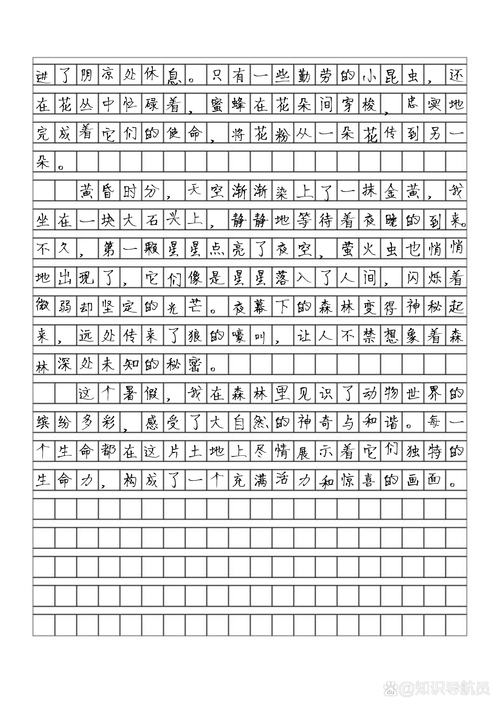 进了阴凉处休息。只有一些勤劳的小昆虫，还
在花丛中忙碌着，蜜蜂在花朵间穿梭，忠实地
完成着它们的使命，将花粉从一朵花传到另一
朵。
黄昏时分，天空渐渐染上了一抹金黄，我
坐在一块大石头上，静静地等待着夜晚的到来。
不久，第一颗星星点亮了夜空，萤火虫也悄悄
地出现了，它们像是星星落入了人间，闪烁着
微弱却坚定的光芒。夜幕下的森林变得神秘起
来，远处传来了狼的嚎叫，让人不禁想象着森
林深处未知的秘密。
这个暑假，我在森林里见识了动物世界的
缤纷多彩，感受了大自然的神奇与和谐。每一
个生命都在这片土地上尽情展示着它们独特的
生命力，构成了一个充满活力和惊喜的画面。
@知识导航员